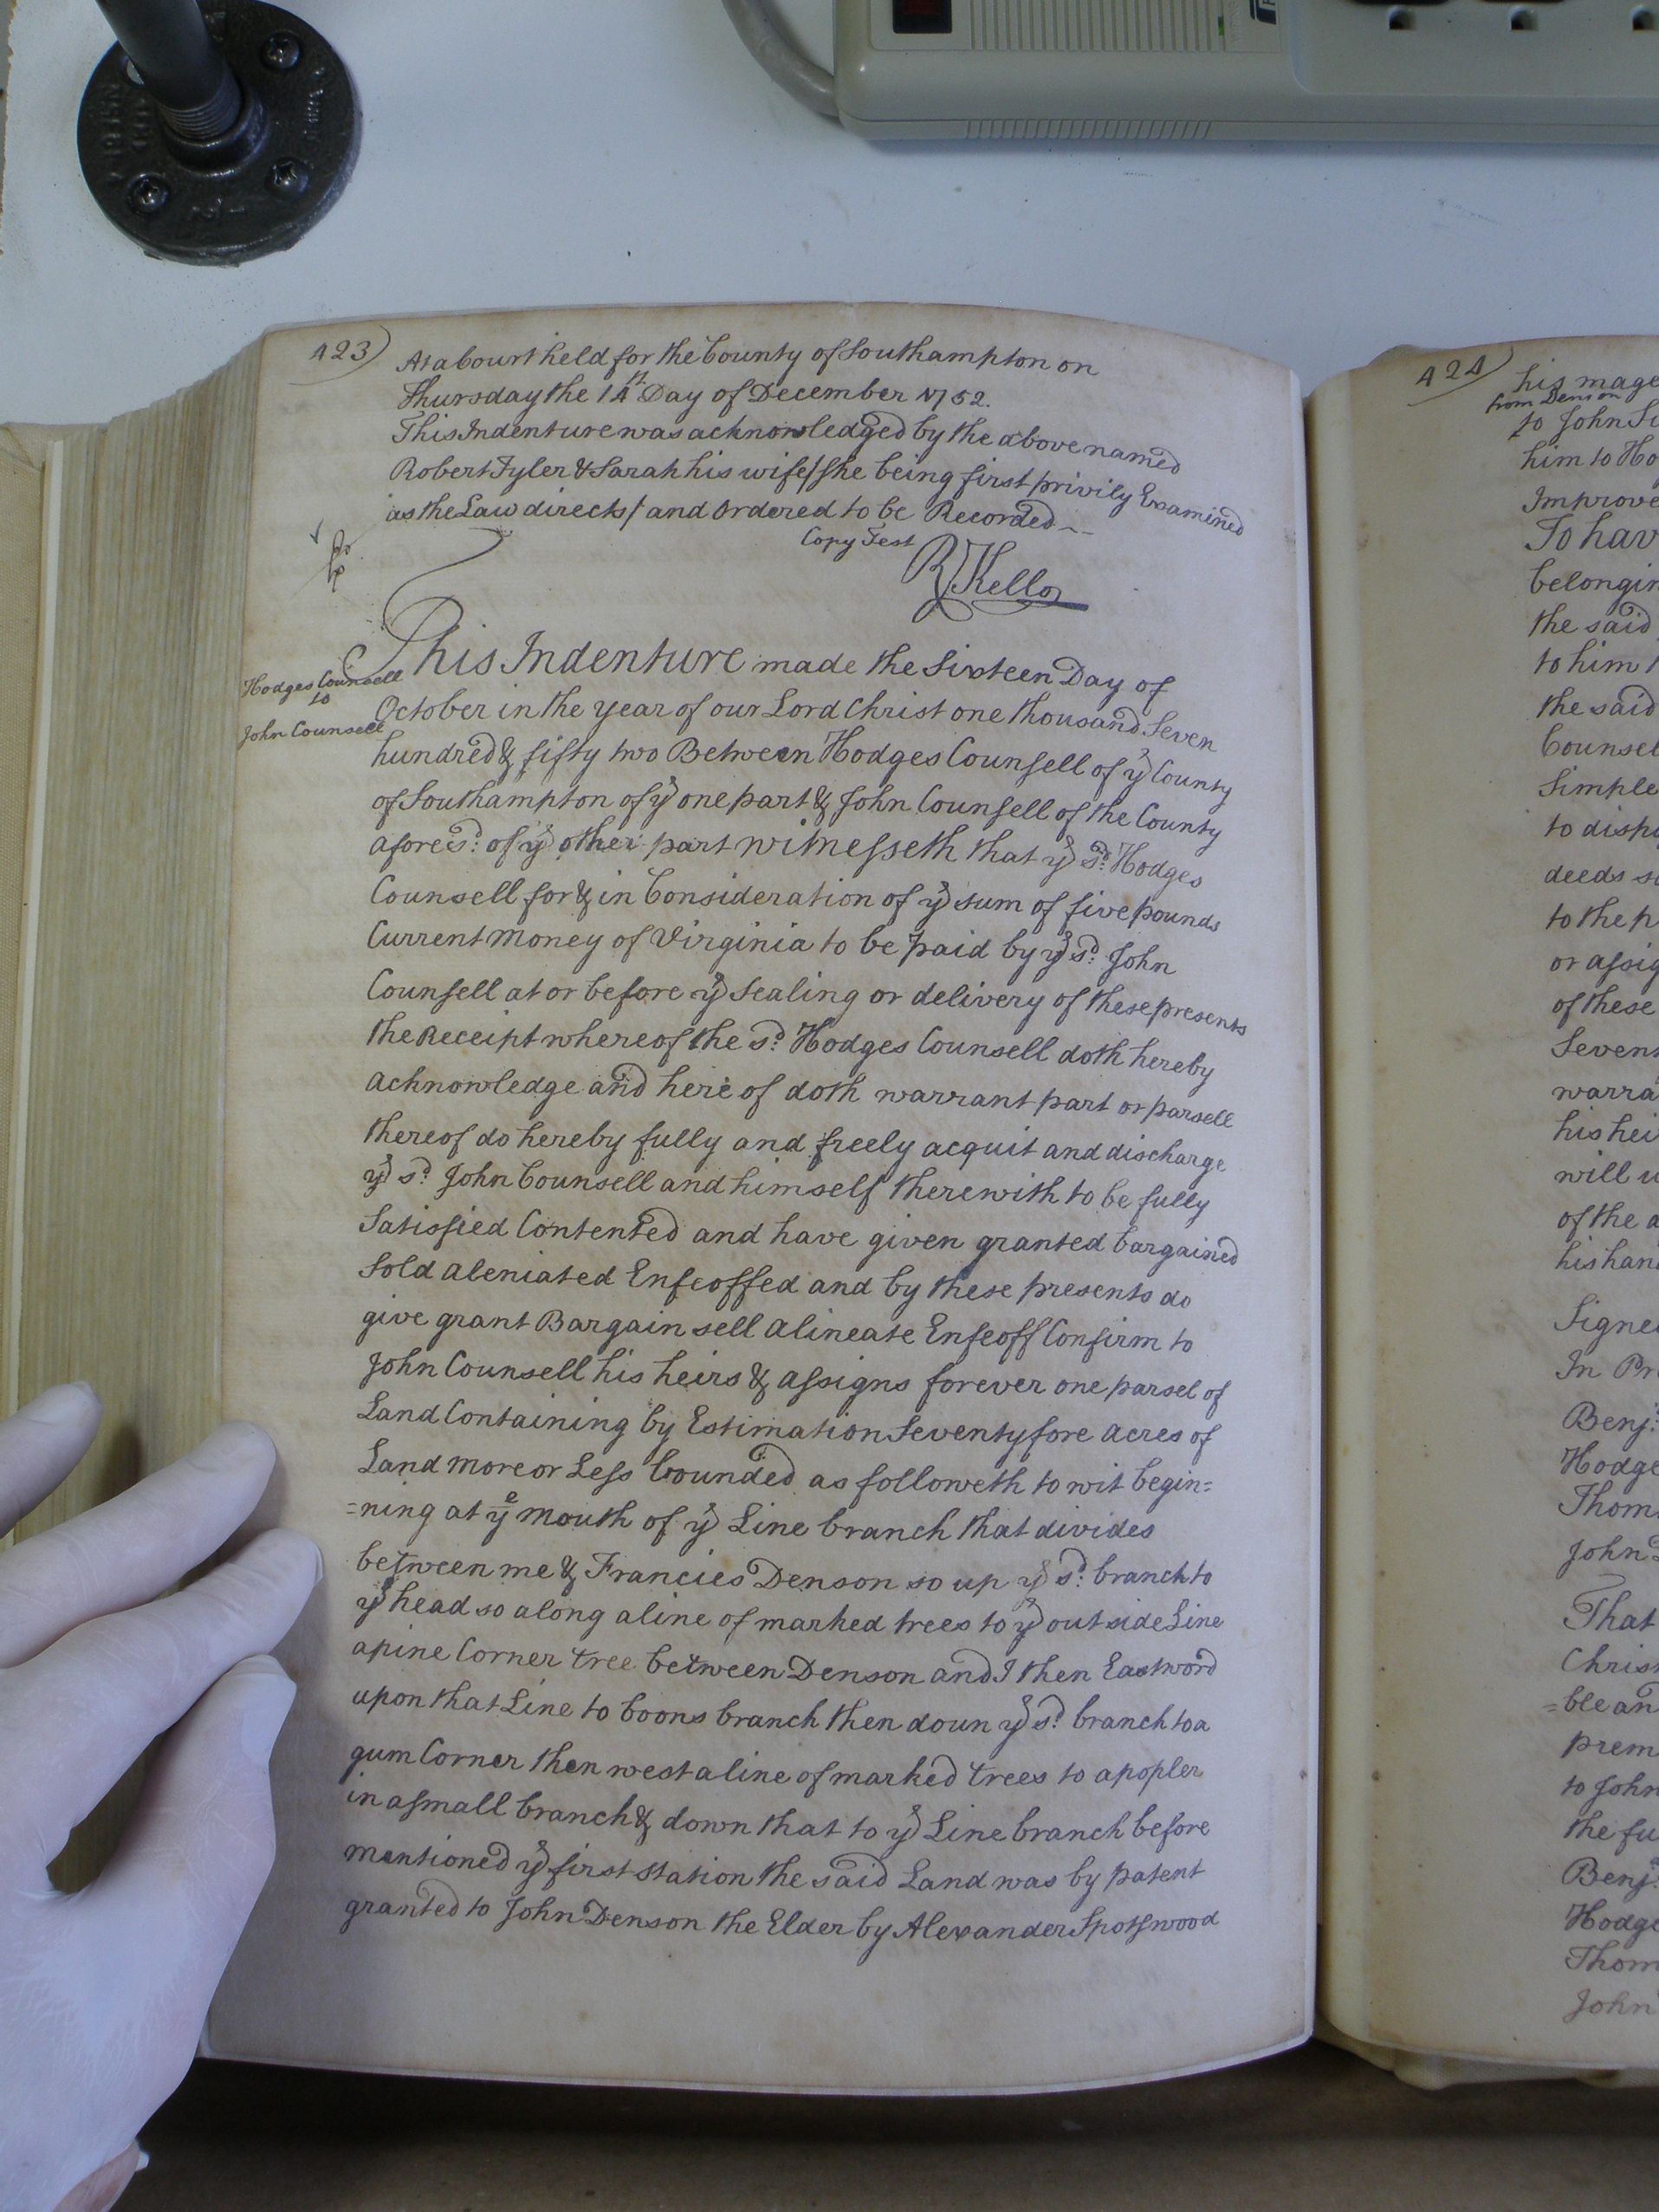 423)
At a Court held for the County of Southampton on
Thursday the 14th Day of December 1752.
This Indenture was acknowledged by the above named
Robert Tyler & Sarah his wife/she being first privily Examined
as the Law directs/ and Ordered to be Recorded
Copy Test
R Kello
Hodges Counsell
to
John Counsell
This Indenture made the Sixteen Day of
October in the year of our Lord Christ one thousand Seven
hundred & fifty two Between Hodges Counsell of ye County
of Southampton of ye one part & John Counsell of the County
afores.d of ye other part witnesseth that ye s.d Hodges
Counsell for & in Consideration of ye sum of five pounds
Current Money of Virginia to be paid by ye s.d John
Counsell at or before ye Sealing or delivery of these presents
the Receipt whereof the s.d Hodges Counsell doth hereby
acknowledge and here of doth warrant part or parsell
thereof do hereby fully and freely acquit and discharge
ye s.d John Counsell and himself therewith to be fully
Satisfied Contented and have given granted bargained
Sold aleniated Enfeoffed and by these presents do
give grant Bargain sell alineate Enfeoff Confirm to
John Counsell his heirs & assigns forever one parsel of
Land Containing by Estimation Seventy fore acres of
Land more or Less bounded as followeth to wit begin=
=ning at ye mouth of ye Line branch that divides
between me & Francies Denson so up ye s.d branch to
ye head so along a line of marked trees to ye out side Line
a pine Corner tree between Denson and I then Eastword
upon that Line to boons branch then doun ye s.d branch to a
gum Corner then west a line of marked trees to a popler
in a small branch & down that to ye Line branch before
mentioned ye first station the said Land was by patent
granted to John Denson the Elder by Alexander Spotswood
424)
his mage
from Denson
to John
him to Ho
Improve
To hav
belongin
the said
to him
the said
Counsel
Simple
to disp
deeds
to the p
or assig
of these
Seven
warra
his hei
will
of the a
his han
Signe
In Pr
Benj.
Hodge
Thom
John
That
Chris
=ble an
prem
to John
the fu
Benj.
Hodge
Thom
John